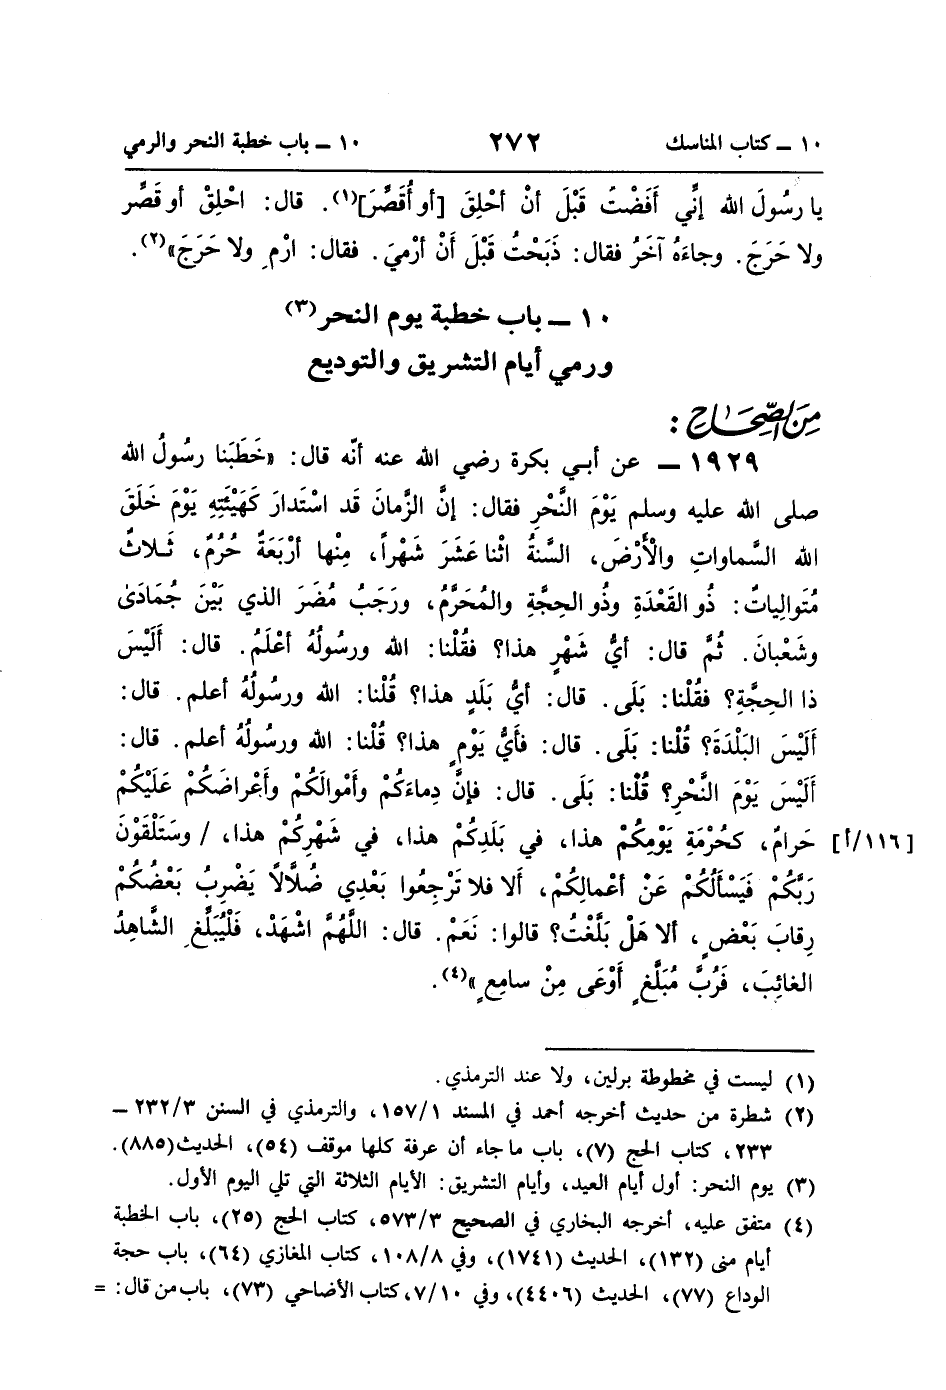 ١٠ ـ كتاب المناسك ٢٧٢ ١٠ ـ باب خطبة النحر والرمي
يا رسُولَ الله إنِّي أَفَضْتُ قَبْلَ أنْ أحْلِقَ [أو أُقَصِّرَ]<sup>(١)</sup>. قال: احْلِقْ أو قَصِّر
ولا حَرَجَ. وجاءَهُ آخَرُ فقال: ذَبَحْتُ قَبْلَ أَنْ أرْميَ. فقال: ارْمِ ولا حَرَجَ»<sup>(٢)</sup>.
١٠ ـ باب خطبة يوم النحر<sup>(٣)</sup>
ورمي أيام التشريق والتوديع
مِنَ الصِّحَاحِ:
١٩٢٩ ـ عن أبي بكرة رضي الله عنه أنّه قال: «خَطَبَنا رسُولُ الله
صلى الله عليه وسلم يَوْمَ النَّحْرِ فقال: إنَّ الزَّمانَ قَد اسْتَدارَ كَهَيْئَتِهِ يَوْمَ خَلَقَ
الله السَّماواتِ والْأَرْضَ، السَّنةُ اثْنا عَشَرَ شَهْراً، مِنْها أرْبَعَةٌ حُرُمٌ، ثَلاثٌ
مُتَوالِياتٌ: ذُو القَعْدَةِ وذُو الحِجَّةِ والمُحَرَّمُ، ورَجَبُ مُضَرَ الذي بَيْنَ جُمَادَىٰ
وشَعْبانَ. ثُمَّ قال: أيُّ شَهْرٍ هذا؟ فقُلْنا: الله ورسُولُهُ أعْلَمُ. قال: أَلَيْسَ
ذا الحِجَّةِ؟ فقُلْنا: بَلَى. قال: أيُّ بَلَدٍ هذا؟ قُلْنا: الله ورسُولُهُ أعلم. قال:
أَلَيْسَ البَلْدَةَ؟ قُلْنا: بَلَى. قال: فَأَيُّ يَوْمٍ هذا؟ قُلْنا: الله ورسُولُهُ أعلم. قال:
أَلَيْسَ يَوْمَ النَّحْرِ؟ قُلْنا: بَلَى. قال: فإنَّ دِماءَكُمْ وأَمْوالَكُمْ وأَعْراضَكُمْ عَلَيْكُمْ
حَرامٌ، كحُرْمَةِ يَوْمِكُمْ هذا، في بَلَدِكُمْ هذا، في شَهْرِكُمْ هذا، / وسَتَلْقَوْنَ [١١٦/أ]
رَبَّكُمْ فَيَسْأَلُكُمْ عَنْ أعْمالِكُمْ، أَلا فلا تَرْجِعُوا بَعْدِي ضُلَّالًا يَضْرِبُ بَعْضُكُمْ
رِقابَ بَعْضٍ، ألا هَلْ بَلَّغْتُ؟ قالوا: نَعَمْ. قال: اللَّهُمَّ اشْهَدْ، فَلْيُبَلِّغِ الشَّاهِدُ
الغائِبَ، فَرُبَّ مُبَلَّغٍ أَوْعَى مِنْ سامِعٍ»<sup>(٤)</sup>.
(١) ليست في مخطوطة برلين، ولا عند الترمذي.
(٢) شطرة من حديث أخرجه أحمد في المسند ١/١٥٧، والترمذي في السنن ٣/٢٣٢ ـ
٢٣٣، كتاب الحج (٧)، باب ما جاء أن عرفة كلها موقف (٥٤)، الحديث (٨٨٥).
(٣) يوم النحر: أول أيام العيد، وأيام التشريق: الأيام الثلاثة التي تلي اليوم الأول.
(٤) متفق عليه، أخرجه البخاري في الصحيح ٣/٥٧٣، كتاب الحج (٢٥)، باب الخطبة
أيام منى (١٣٢)، الحديث (١٧٤١)، وفي ٨/١٠٨، كتاب المغازي (٦٤)، باب حجة
الوداع (٧٧)، الحديث (٤٤٠٦)، وفي ١٠/٧، كتاب الأضاحي (٧٣)، باب من قال: =